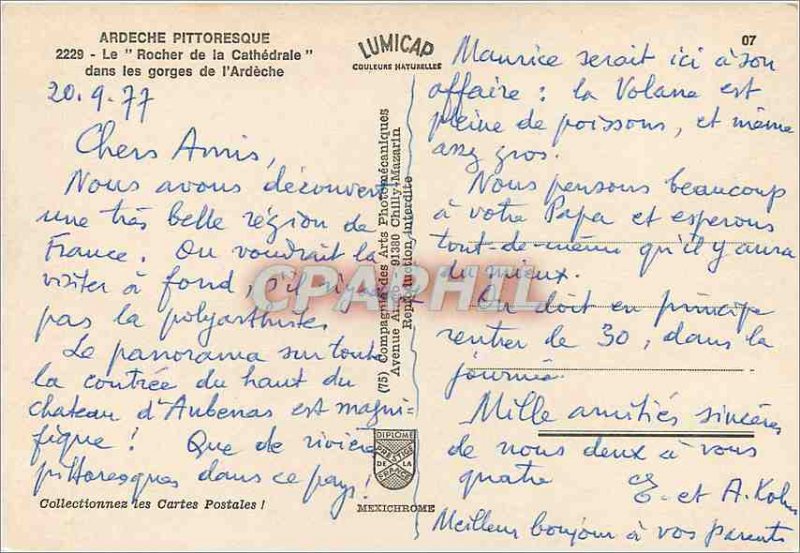 ARDECHE PITTORESQUE
2229 - Le " Rocher de la Cathédrale "
dans les gorges de l'Ardèche
20.9.77
Chers Amis,
Nous avons découvert
une très belle région de
France. On voudrait la
visiter à fond, s'il n'y avait
pas la polyarthrite.
Le panorama sur toute
la contrée du haut du
chateau d'Aubenas est magni-
fique ! Que de rivières
pittoresques dans ce pays !
Collectionnez les Cartes Postales !
LUMICAP
COULEURS NATURELLES
(75) Compagnie des Arts Photomécaniques
Avenue 91380 Chilly-Mazarin
Reproduction interdite
DIPLOME
PRESTIGE
DE LA
FRANCE
MEXICHROME
CPAPHIL
07
Maurice serait ici à son
affaire : la Volane est
pleine de poissons, et même
assez gros.
Nous pensons beaucoup
à votre Papa et esperons
tout-de-même qu'il y aura
du mieux.
On doit en principe
rentrer le 30, dans la
journée.
Mille amitiés sincères
de nous deux à vous
quatre
et A. Kohn
Meilleur bonjour à vos parents